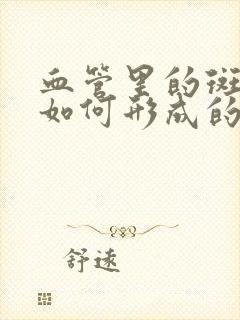 血管里的斑
如何形成的
舒速